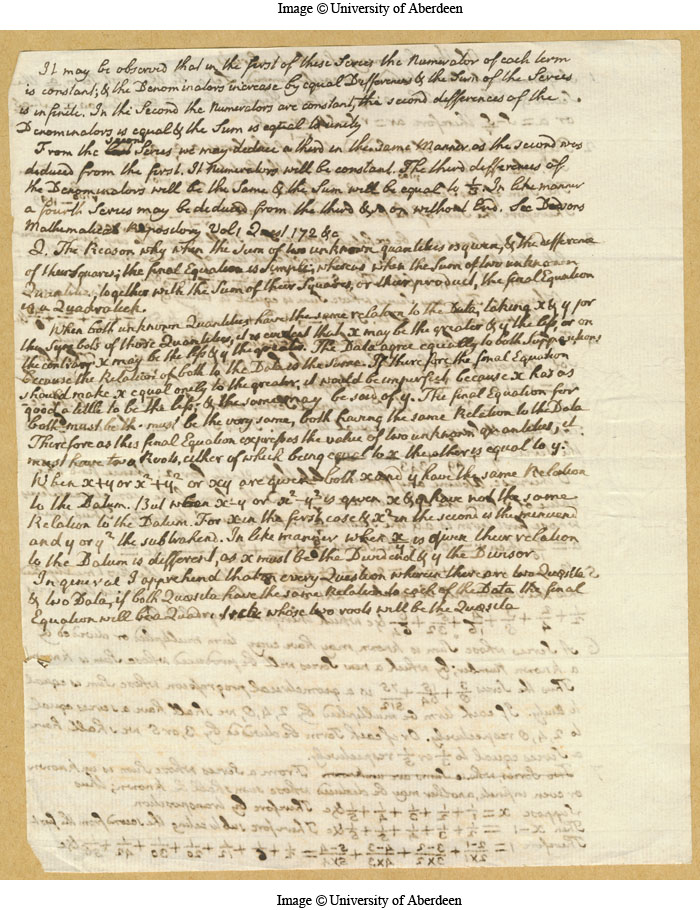 Image © University of Aberdeen
It may be observed that in the first of these Series the Numerator of each term
is constant, & the Denominators increase by equal Differences & the Sum of the Series
is infinite. In the Second the Numerators are constant, the second differences of the
Denominators is equal & the Sum is eqtal to unity
From the second Series we may deduce a third in the same Manner as the second was
deduced from the first. It Numerators will be constant. The third differences of
the Denominators will be the Same & the Sum will be equal to ½. In like manner
a fourth Series may be deduced from the third & so on without End. See Dodsons
Mathematical Repository Vol 1 Quest. 172 &c
2. The Reason why when the Sum of two unknown quantities is given, & the difference
of their Squares; the final Equation is Simple; whereas when the Sum of two unknown
Quantities, together with the Sum of their Squares, or their product, the final Equation
is a Quadratick.
When both unknown Quantities have the same relation to the Data; taking x & y for
the Symbols of those Quantities, it is evident that x may be the greater & y the less, or on
the contrary x may be the less & y the greater. The Data agree equally to both Suppositions
because the Relation of both to the Data is the Same. If therefore the final Equation
should make x equal onely to the greater, it would be imperfect, because x has as
good a title to be the less; & the same may be said of y. The final Equation for
both must be the must be the very same, both having the same Relation to the Data
Therefore as this final Equation expresses the value of two unknown quantities, it
must have two Roots, either of which being equal to x the other is equal to y.
When x+y or x²+y², or xy are given both x and y have the same Relation
to the Datum. But when x-y or x²-y² is given x & y have not the same
Relation to the Datum. For x in the first case & x² in the second is the minuend
and y or y² the subtrahend. In like manner when x/y is given their relation
to the Datum is different, as x must be the Dividend & y the Divisor.
In general I apprehend that in every Question wherein there are two Quæsita
& two Data, if both Quæsita have the same Relation to each of the Data the final
Equation will be a Quadratick whose two roots will be the Quæsita
Image © University of Aberdeen